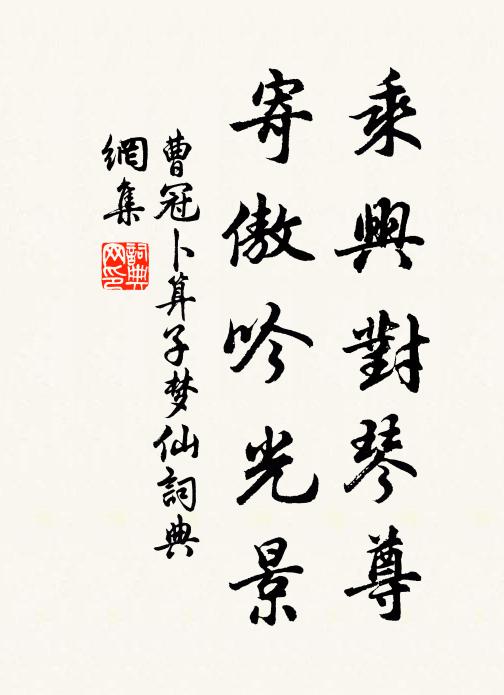 乘興對琴尊
寄傲吟光景
曹冠卜算子梦仙詞典
網集
詞典
网印